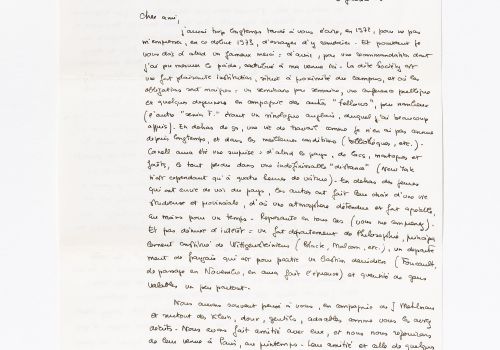 Cher ami,
j'aurai trop longtemps tardé à vous écrire, en 1972, pour ne pas
m'empresser, en ce début 1973, d'essayer d'y remédier. Et pourtant je
vous dois d'abord un fameux merci : d'avoir, par vos recommandations dont
j'ai pu mesurer le poids, contribué à ma venue ici. La dite Society est
une fort plaisante institution, située à proximité du campus, et où les
obligations sont maigres : un séminaire par semaine, une conférence publique
et quelques déjeuners en compagnie des autres "fellows", peu nombreux
(l'autre "senior F." étant un sinologue anglais, duquel j'ai beaucoup
appris). En dehors de ça, une vie de travail comme je n'en ai pas connue
depuis longtemps, et dans les meilleures conditions (bibliothèques, etc.).
Cornell aura été une surprise : d'abord le pays, de lacs, montagnes et
forêts, le tout perdu dans une indéfinissable "distance" (New York
n'est cependant qu'à quatre heures de voiture). En dehors des jeunes
qui ont envie de voir du pays, les autres ont fait leur choix d'une vie
studieuse et provinciale, d'où une atmosphère détendue et fort agréable,
au moins pour un temps. Reposante en tous cas (vous me comprenez).
Et pas dénuée d'intérêt : un fort département de Philosophie, principa-
lement constitué de Wittgensteiniens (Black, Malcolm, etc.), un départe-
ment de français qui a pour partie un bastion derridien (Foucault,
de passage en Novembre, en aura fait l'épreuve) et quantité de gens
valables un peu partout.
Nous avons souvent pensé à vous, en compagnie de J. Mehlman
et surtout des Klein, doux, gentils, adorables comme vous les aviez
décrits. Nous avons fait amitié avec eux, et nous nous réjouissons
de leur venue à Paris, au printemps. Leur amitié et celle de quelques